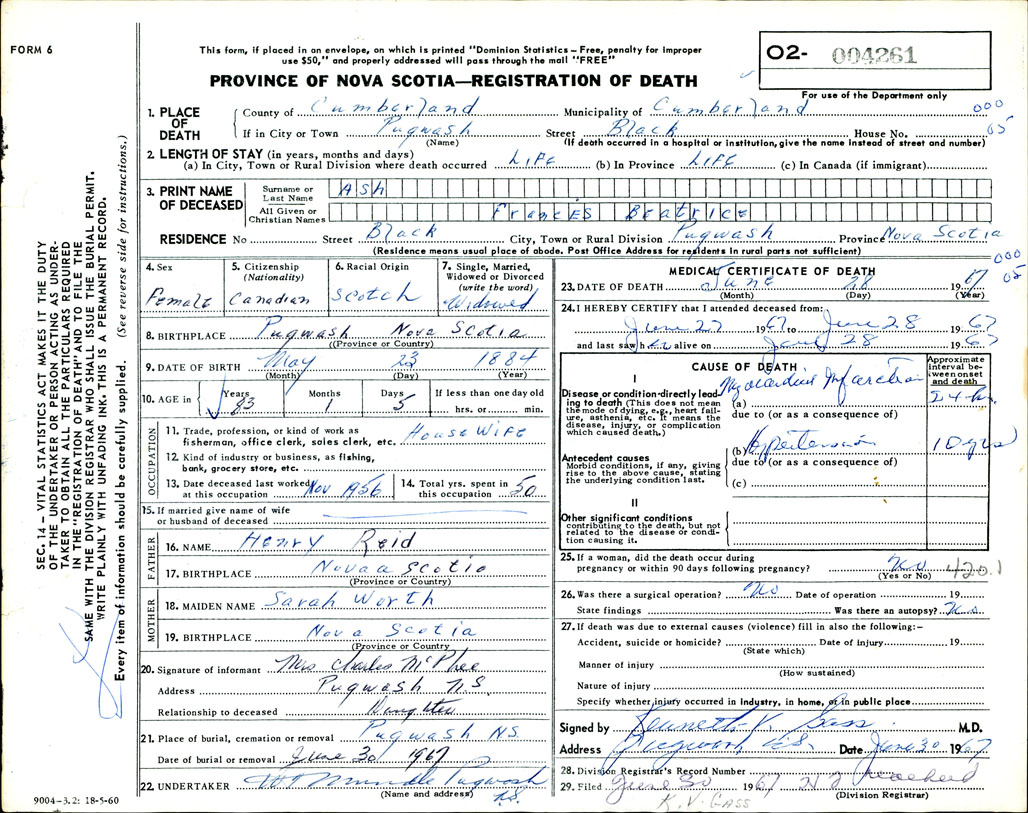 FORM 6
This form, if placed in an envelope, on which is printed "Dominion Statistics – Free, penalty for improper
use $50," and properly addressed will pass through the mail "FREE"
PROVINCE OF NOVA SCOTIA—REGISTRATION OF DEATH
O2- 004261
For use of the Department only
SEC. 14 – VITAL STATISTICS ACT MAKES IT THE DUTY
OF THE UNDERTAKER OR PERSON ACTING AS UNDER-
TAKER TO OBTAIN ALL THE PARTICULARS REQUIRED
IN THE "REGISTRATION OF DEATH" AND TO FILE THE
SAME WITH THE DIVISION REGISTRAR WHO SHALL ISSUE THE BURIAL PERMIT.
WRITE PLAINLY WITH UNFADING INK. THIS IS A PERMANENT RECORD.
Every item of information should be carefully supplied. (See reverse side for instructions.)
1. PLACE OF DEATH
County of Cumberland Municipality of Cumberland 000
If in City or Town Pugwash Street Black House No. 05
(Name) (If death occurred in a hospital or institution, give the name instead of street and number)
2. LENGTH OF STAY (in years, months and days)
(a) In City, Town or Rural Division where death occurred LIFE (b) In Province LIFE (c) In Canada (if immigrant)
3. PRINT NAME OF DECEASED
Surname or Last Name Ash
All Given or Christian Names Frances Beatrice
RESIDENCE No Street Black City, Town or Rural Division Pugwash Province Nova Scotia
(Residence means usual place of abode. Post Office Address for residents in rural parts not sufficient)
000
05
4. Sex Female
5. Citizenship (Nationality) Canadian
6. Racial Origin Scotch
7. Single, Married, Widowed or Divorced (write the word) Widowed
8. BIRTHPLACE Pugwash Nova Scotia
(Province or Country)
9. DATE OF BIRTH May 23 1884
(Month) (Day) (Year)
10. AGE in Years 83 Months 1 Days 5 If less than one day old hrs. or min.
OCCUPATION
11. Trade, profession, or kind of work as
fisherman, office clerk, sales clerk, etc. House Wife
12. Kind of industry or business, as fishing,
bank, grocery store, etc.
13. Date deceased last worked at this occupation Nov 1956
14. Total yrs. spent in this occupation 50
15. If married give name of wife
or husband of deceased
FATHER
16. NAME Henry Reid
17. BIRTHPLACE Novaa Scotia
(Province or Country)
MOTHER
18. MAIDEN NAME Sarah Worth
19. BIRTHPLACE Nova Scotia
(Province or Country)
20. Signature of informant Mrs Charles McPhee
Address Pugwash N.S.
Relationship to deceased Daughter
21. Place of burial, cremation or removal Pugwash N.S.
Date of burial or removal June 30 1967
22. UNDERTAKER Pugwash
(Name and address) N.S.
9004-3.2: 18-5-60
MEDICAL CERTIFICATE OF DEATH
23. DATE OF DEATH June 28 1967
(Month) (Day) (Year)
24. I HEREBY CERTIFY that I attended deceased from:
June 27 1967 to June 28 1967
and last saw her alive on June 28 1967
CAUSE OF DEATH
Approximate interval between onset and death
I
Disease or condition directly leading to death (This does not mean
the mode of dying, e.g., heart failure, asthenia, etc. It means the
disease, injury, or complication
which caused death.)
(a) Myocardial Infarction 24 hr.
due to (or as a consequence of)
(b) Hypertension 10 yrs
due to (or as a consequence of)
Antecedent causes
Morbid conditions, if any, giving
rise to the above cause, stating
the underlying condition last.
(c)
II
Other significant conditions
contributing to the death, but not
related to the disease or condition causing it.
25. If a woman, did the death occur during
pregnancy or within 90 days following pregnancy? No
(Yes or No) 420.1
26. Was there a surgical operation? No Date of operation 19
State findings Was there an autopsy? No
27. If death was due to external causes (violence) fill in also the following:–
Accident, suicide or homicide? Date of injury 19
(State which)
Manner of injury
(How sustained)
Nature of injury
Specify whether injury occurred in industry, in home, or in public place
Signed by Kenneth V. Gass M.D.
Address Pugwash N.S. Date June 30 1967
28. Division Registrar's Record Number
29. Filed June 30 1967
(Division Registrar)
K. V. GASS